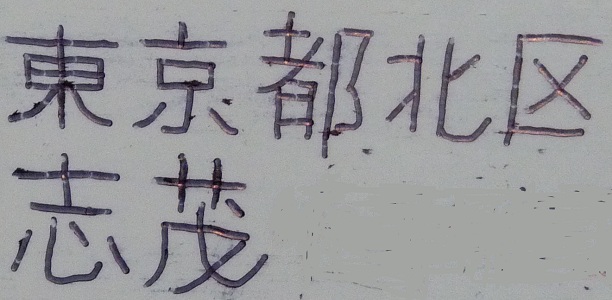 東京都北区
志茂